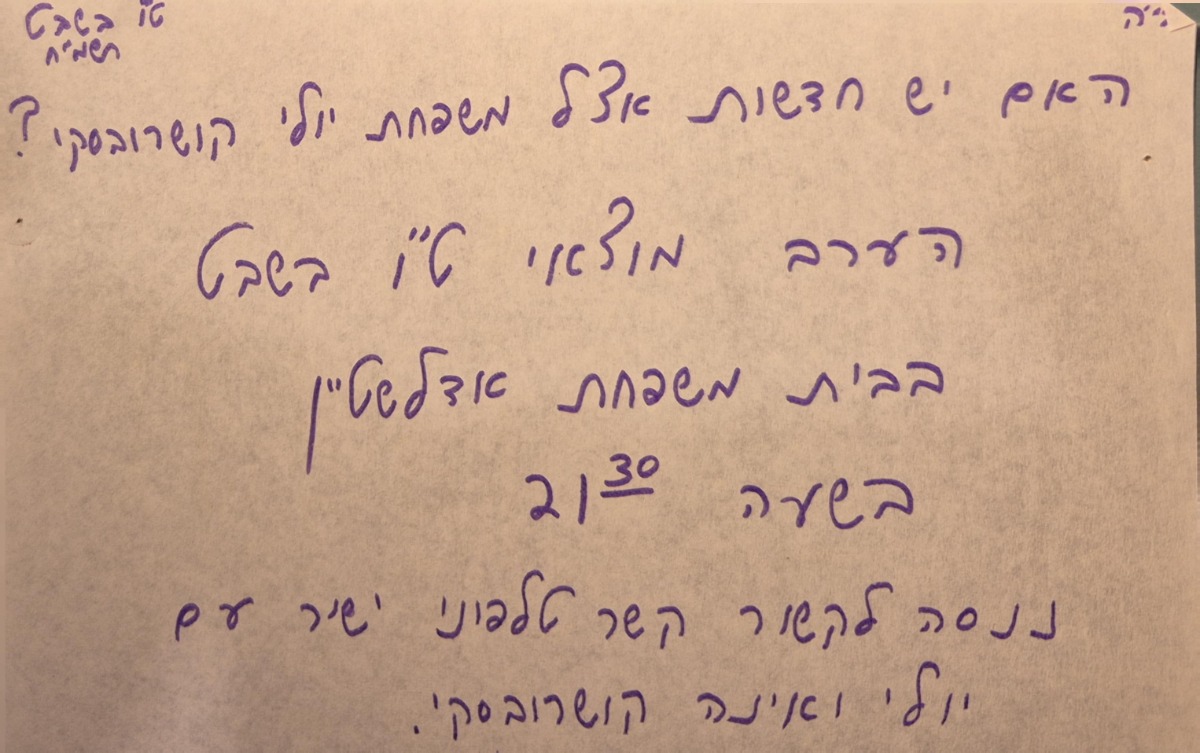 ב"ה
ט"ו בשבט
תשמ"ח
האם יש חדשות אצל משפחת יולי קושרובסקי?
הערב מוצאי ט"ו בשבט
בבית משפחת אדלשטיין
בשעה 21 30
ננסה לקשור קשר טלפוני ישיר עם
יולי ואינה קושרובסקי.